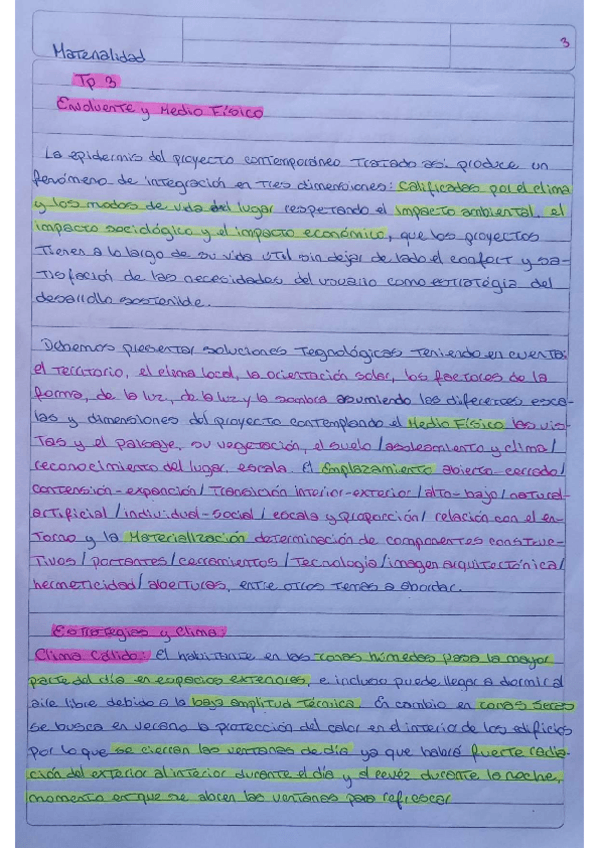 3
Materialidad
Tp 3
Envolvente y Medio Físico
La epidermis del proyecto contemporáneo tratado así. produce un
fenómeno de integración en tres dimensiones: Calificadas por el clima
y los modos de vida del lugar respetando el impacto ambiental, el
impacto sociológico y el impacto económico, que los proyectos
tienen a lo largo de su vida útil sin dejar de lado el confort y sa-
tisfación de las necesidades del usuario como estratégia del
desarrollo sostenible.
Debemos presentar soluciones tegnológicas teniendo en cuenta:
el territorio, el clima local, la orientación solar, los factores de la
forma, de la luz, de la luz y la sombra asumiendo las diferentes esca-
las y dimensiones del proyecto contemplando el Medio Físico las vis-
tas y el paisaje, su vegetación, el suelo/asoleamiento y clima/
reconocimiento del lugar, escala. El Emplazamiento abierto-cerrado/
contensión-expanción/transición interior-exterior/alto-bajo/natural-
artificial/individual-social/escala y proporción/relación con el en-
torno y la Materialización determinación de componentes construc-
tivos/portantes/cerramientos/tecnología/imagen arquitectónica/
hermeticidad/aberturas, entre otros temas a abordar.
Estrategias y Clima:
Clima Cálido: El habitante en las zonas húmedas pasa la mayor
parte del día en espacios exteriores, e incluso puede llegar a dormir al
aire libre debido a la baja amplitud térmica. En cambio en zonas secas
se busca en verano la protección del calor en el interior de los edificios
por lo que se cierran las ventanas de día ya que habrá fuerte radia-
ción del exterior al interior durante el día y al revéz durante la noche,
momento en que se abren las ventanas para refrescar